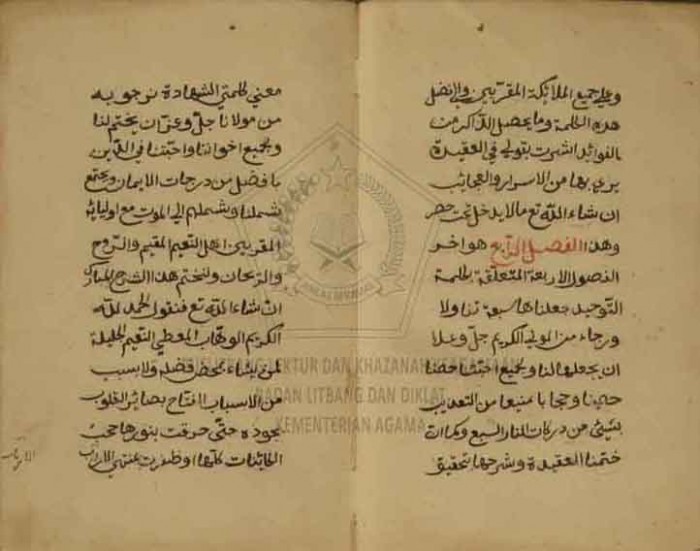 وعلى جميع الملائكة المقربين والفضل
هذه الكلمة وما يحصل لذاكرها من
الفوائد اشرت بقولي في العقيدة
يرى بها من الاسرار والعجائب
ان شاء الله تع مالا يدخل تحت حصر
وهذا الفصل الرابع هو اخر
الفصول الاربعة المتعلقة بكلمة
التوحيد جعلناها سبعة تفاولا
ورجاء من المولى الكريم جل وعلا
ان يجعلها لنا ولجميع احبتنا حصنا
حصينا وحجابا منيعا من التعذيب
بشيئ من دركات النار السبع وكما ان
ختمنا العقيدة وشرحها بتحقيق
معنى كلمتي الشهادة نرجو به
من مولانا جل وعز ان يختم لنا
ولجميع اخواننا واحبتنا في الدين
بافضل من درجات الايمان ويجمع
شملنا وشملهم الى الموت مع اوليائه
المقربين اهل النعيم المقيم والروح
والريحان ولنختم هذا الشرح المبارك
ان شاء الله تع فنقول الحمد لله
الكريم الوهاب المعطي النعيم الجليلة
لمن يشاء بمحض فضله ولا سبب
من الاسباب الفتاح بصائر القلوب
بجوده حتى خرقت بنورها حجب
الكائنات كلها وظفرت بمنتهى
PUSLITBANG LEKTUR DAN KHAZANAH KEAGAMAAN
BADAN LITBANG DAN DIKLAT
KEMENTERIAN AGAMA